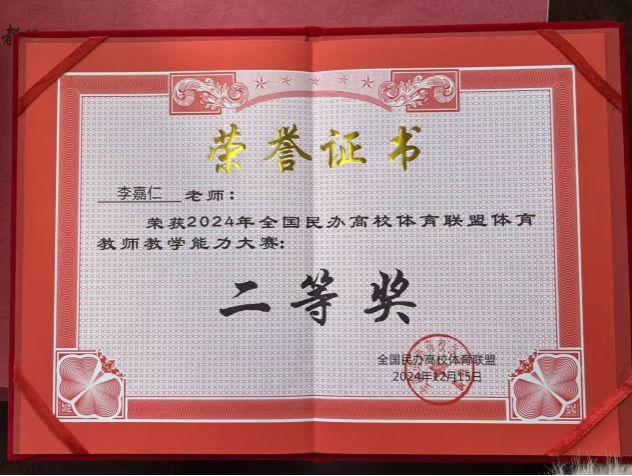 荣誉证书
李嘉仁 老师：
荣获2024年全国民办高校体育联盟体育
教师教学能力大赛：
二等奖
全国民办高校体育联盟
2024年12月15日